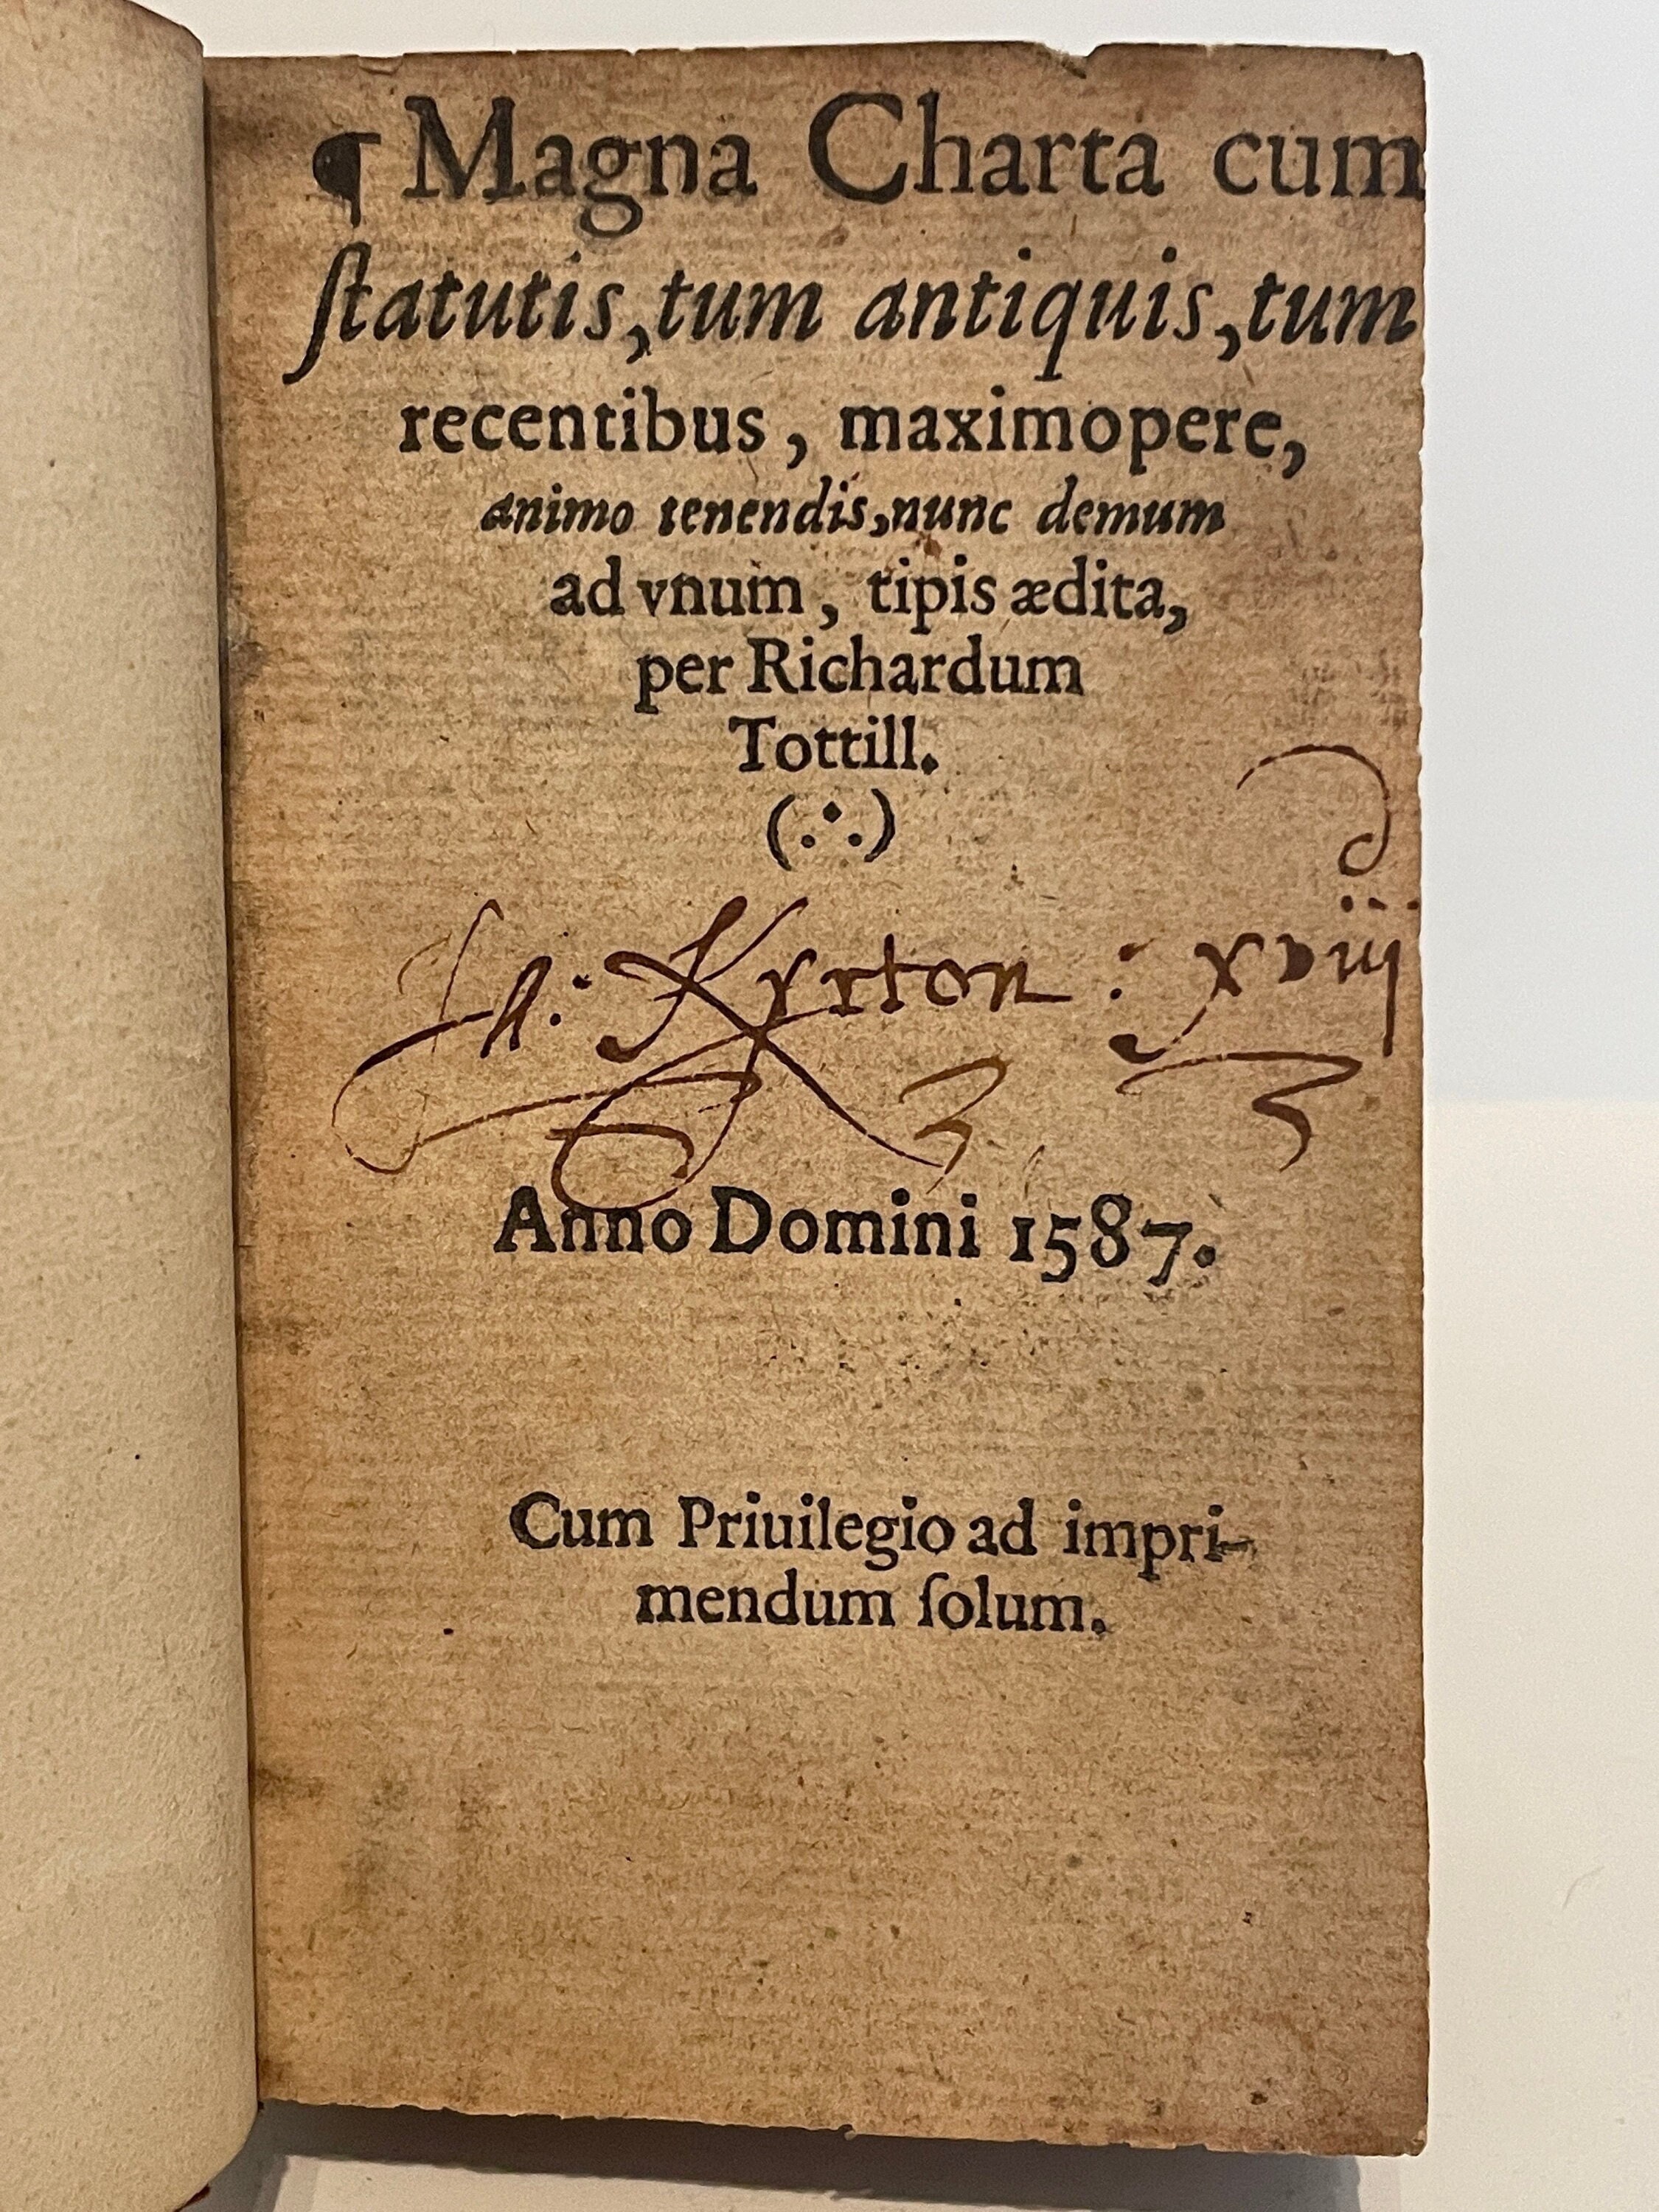 ¶ Magna Charta cum
ſtatutis, tum antiquis, tum
recentibus, maximopere,
animo tenendis, nunc demum
ad vnum, tipis ædita,
per Richardum
Tottill.
(∴)
Th: Kyrton : xviij
Anno Domini 1587.
Cum Priuilegio ad impri-
mendum ſolum.